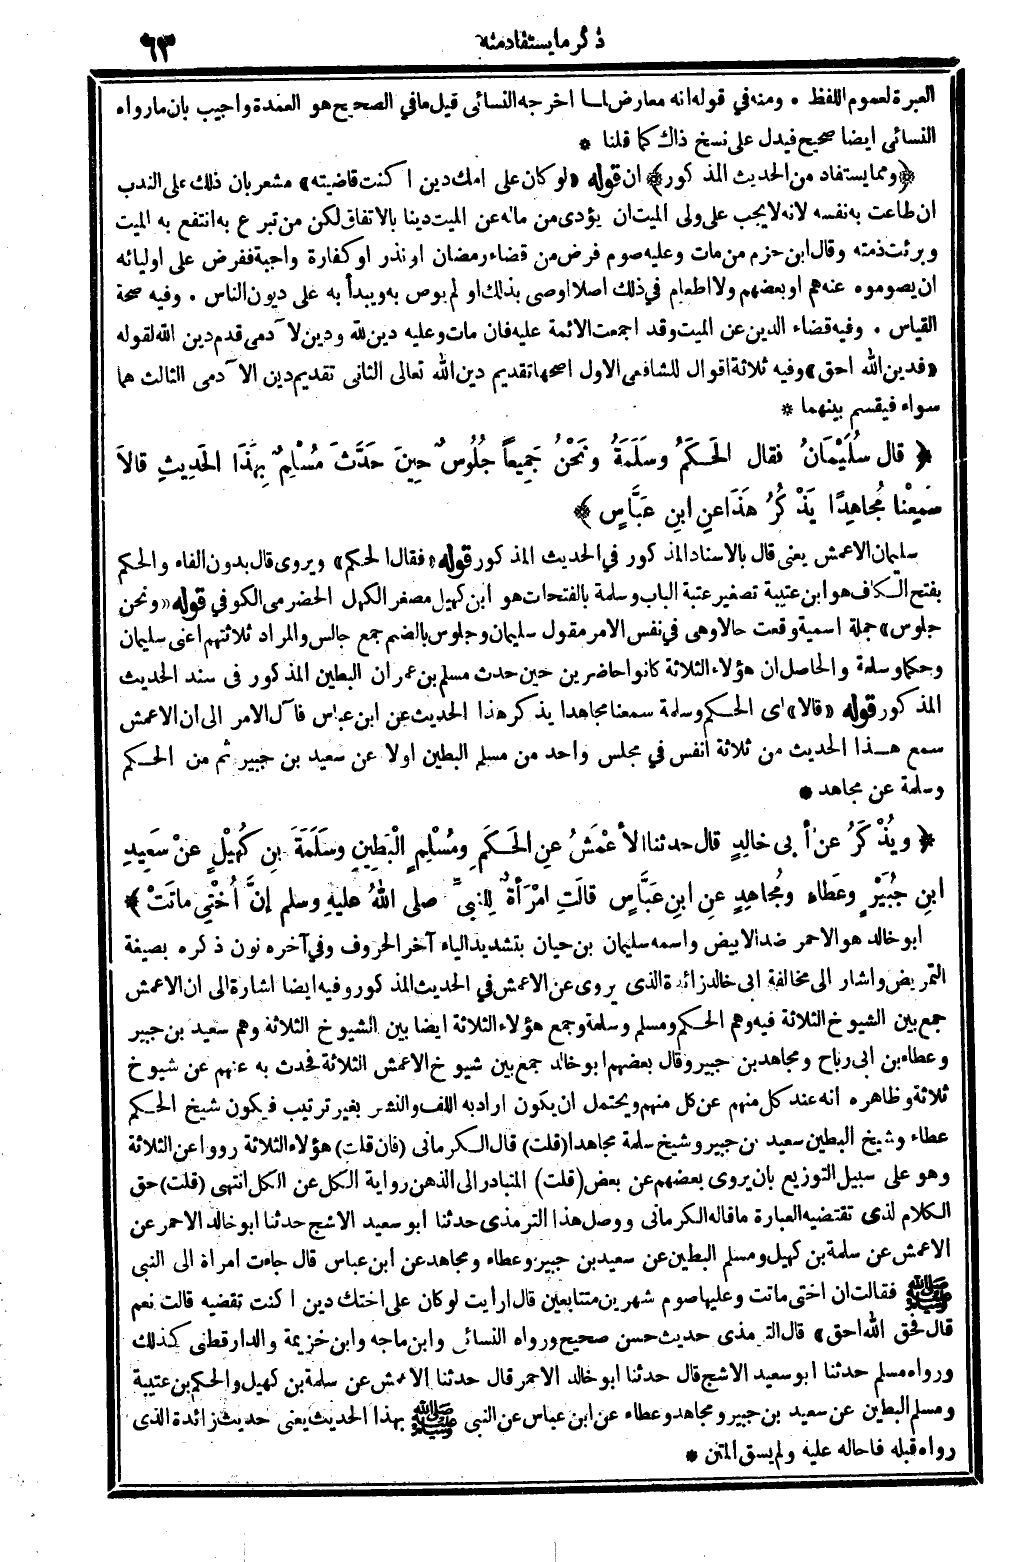 ذكر مايستفادمنه
٦٣
العبرة لعموم اللفظ • ومنه في قوله انه معارض لما اخرجه النسائى قيل مافي الصحيح هو العمدة واجيب بان مارواه
النسائى ايضا صحيح فيدل على نسخ ذاك كما قلنا *
﴿ومما يستفاد من الحديث المذكور﴾ ان قوله «لو كان على امك دين اكنت قاضيته» مشعر بان ذلك على الندب
ان طاعت به نفسه لانه لا يجب على ولى الميت ان يؤدى من ماله عن الميت دينا بالاتفاق لكن من تبرع به انتفع به الميت
وبرئت ذمته وقال ابن حزم من مات وعليه صوم فرض من قضاء رمضان او نذر او كفارة واجبة ففرض على اوليائه
ان يصوموه عنه هم او بعضهم ولا اطعام في ذلك اصلا اوصى بذلك او لم يوص به ويبدأ به على ديون الناس • وفيه صحة
القياس • وفيه قضاء الدين عن الميت وقد اجمعت الائمة عليه فان مات وعليه دين لله ودين لآدمى قدم دين الله لقوله
«فدين الله احق» وفيه ثلاثة اقوال للشافعى الاول اصحها تقديم دين الله تعالى الثانى تقديم دين الآدمى الثالث هما
سواء فيقسم بينهما *
﴿ قال سُلَيْمَانُ فقال الحَكَمُ وسَلَمَةُ ونَحْنُ جَمِيعاً جُلُوسٌ حِينَ حَدَّثَ مُسْلِمٌ بِهٰذَا الحَدِيثِ قالاَ
سَمِعْنا مُجاهِدًا يَذْكُرُ هَذَا عنِ ابنِ عَبَّاسٍ ﴾
سليمان الاعمش يعنى قال بالاسناد المذكور في الحديث المذكور قوله «فقال الحكم» ويروى قال بدون الفاء والحكم
بفتح الكاف هو ابن عتيبة تصغير عتبة الباب وسلمة بالفتحات هو ابن كهيل مصغر الكهل الحضرمى الكوفي قوله «ونحن
جلوس» جملة اسمية وقعت حالا وهى في نفس الامر مقول سليمان وجلوس بالضم جمع جالس والمراد ثلاثتهم اعنى سليمان
وحكما وسلمة والحاصل ان هؤلاء الثلاثة كانوا حاضرين حين حدث مسلم بن عمران البطين المذكور فى سند الحديث
المذكور قوله «قالا» اى الحكم وسلمة سمعنا مجاهدا يذكر هذا الحديث عن ابن عباس فآل الامر الى ان الاعمش
سمع هـذا الحديث من ثلاثة انفس في مجلس واحد من مسلم البطين اولا عن سعيد بن جبير ثم من الحـكم
وسلمة عن مجاهد *
﴿ ويُذْكَرُ عنْ أبى خالِدٍ قال حدثنا الأعْمَشُ عنِ الحَكَمِ ومُسْلِمٍ الْبَطِينِ وسَلَمَةَ بنِ كُهَيْلٍ عنْ سَعِيدِ
ابنِ جُبَيْرٍ وعَطاءٍ ومُجاهِدٍ عنِ ابنِ عَبَّاسٍ قالَتِ امْرَأةٌ لِلنبىِّ صلى اللهُ عليهِ وسلم إنَّ أُخْتِي ماتَتْ ﴾
ابو خالد هو الاحمر ضد الابيض واسمه سليمان بن حيان بتشديد الياء آخر الحروف وفي آخره نون ذكره بصيغة
التمريض واشار الى مخالفة ابى خالد زائدة الذى يروى عن الاعمش في الحديث المذكور وفيه ايضا اشارة الى ان الاعمش
جمع بين الشيوخ الثلاثة فيه وهم الحكم ومسلم وسلمة وجمع هؤلاء الثلاثة ايضا بين الشيوخ الثلاثة وهم سعيد بن جبير
وعطاء بن ابى رباح ومجاهد بن جبير وقال بعضهم ابو خالد جمع بين شيوخ الاعمش الثلاثة فحدث به عنهم عن شيوخ
ثلاثة وظاهره انه عند كل منهم عن كل منهم ويحتمل ان يكون ارادبه اللف والنشر بغير ترتيب فيكون شيخ الحـكم
عطاء وشيخ البطين سعيد بن جبير وشيخ سلمة مجاهدا (قلت) قال الكرمانى (فان قلت) هؤلاء الثلاثة رووا عن الثلاثة
وهو على سبيل التوزيع بان يروى بعضهم عن بعض (قلت) المتبادر الى الذهن رواية الكل عن الكل انتهى (قلت) حق
الكلام لذى تقتضيه العبارة ماقاله الكرمانى ووصل هذا الترمذى حدثنا ابو سعيد الاشج حدثنا ابو خالد الاحمر عن
الاعمش عن سلمة بن كهيل ومسلم البطين عن سعيد بن جبير وعطاء ومجاهد عن ابن عباس قال جاءت امراة الى النبى
ﷺ فقالت ان اختى ماتت وعليها صوم شهرين متتابعين قال ارايت لو كان على اختك دين اكنت تقضيه قالت نعم
قال فحق الله احق» قال الترمذى حديث حسن صحيح ورواه النسائى وابن ماجه وابن خزيمة والدارقطنى كذلك
ورواه مسلم حدثنا ابو سعيد الاشج قال حدثنا ابو خالد الاحمر قال حدثنا الاعمش عن سلمة بن كهيل والحكم بن عتيبة
ومسلم البطين عن سعيد بن جبير ومجاهد وعطاء عن ابن عباس عن النبى ﷺ بهذا الحديث يعنى حديث زائدة الذى
رواه قبله فاحاله عليه ولم يسق المتن *